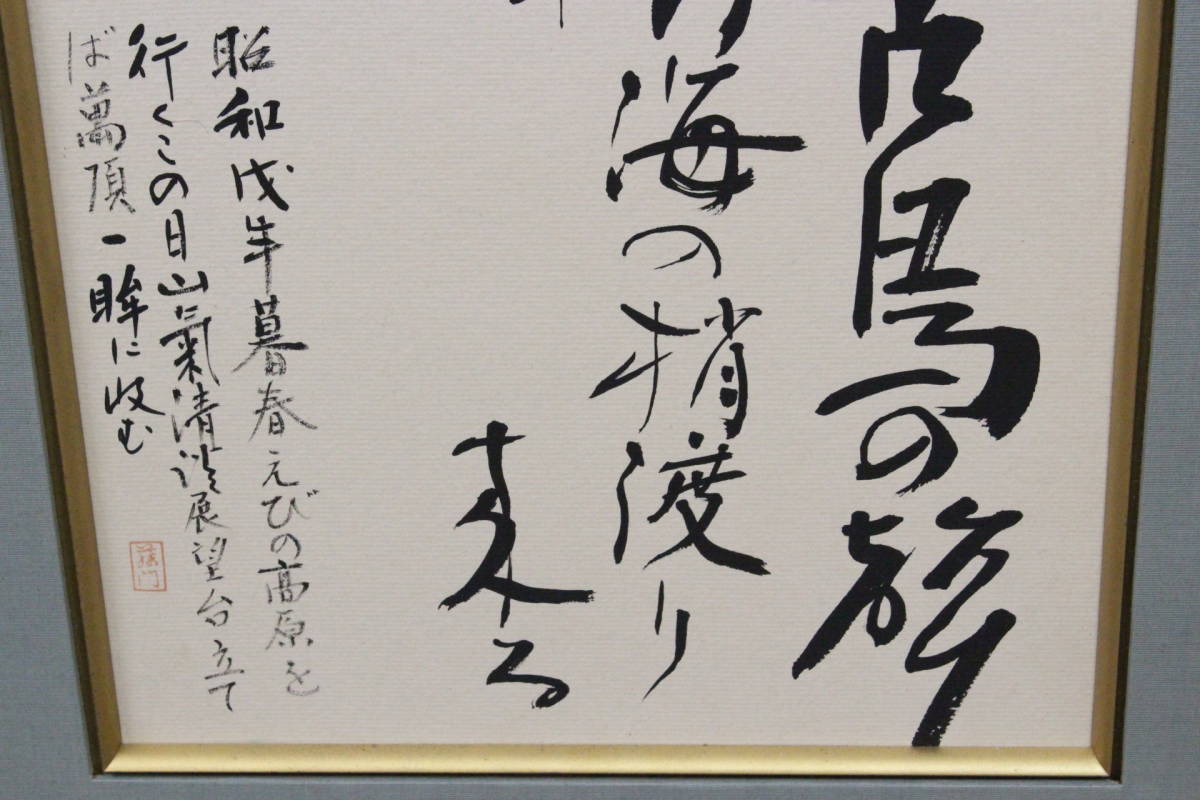 馬の
海の梢渡り
来る
昭和戊午暮春えびの高原を
行くこの日山氣清澄展望台立て
ば萬頃一眸に收む